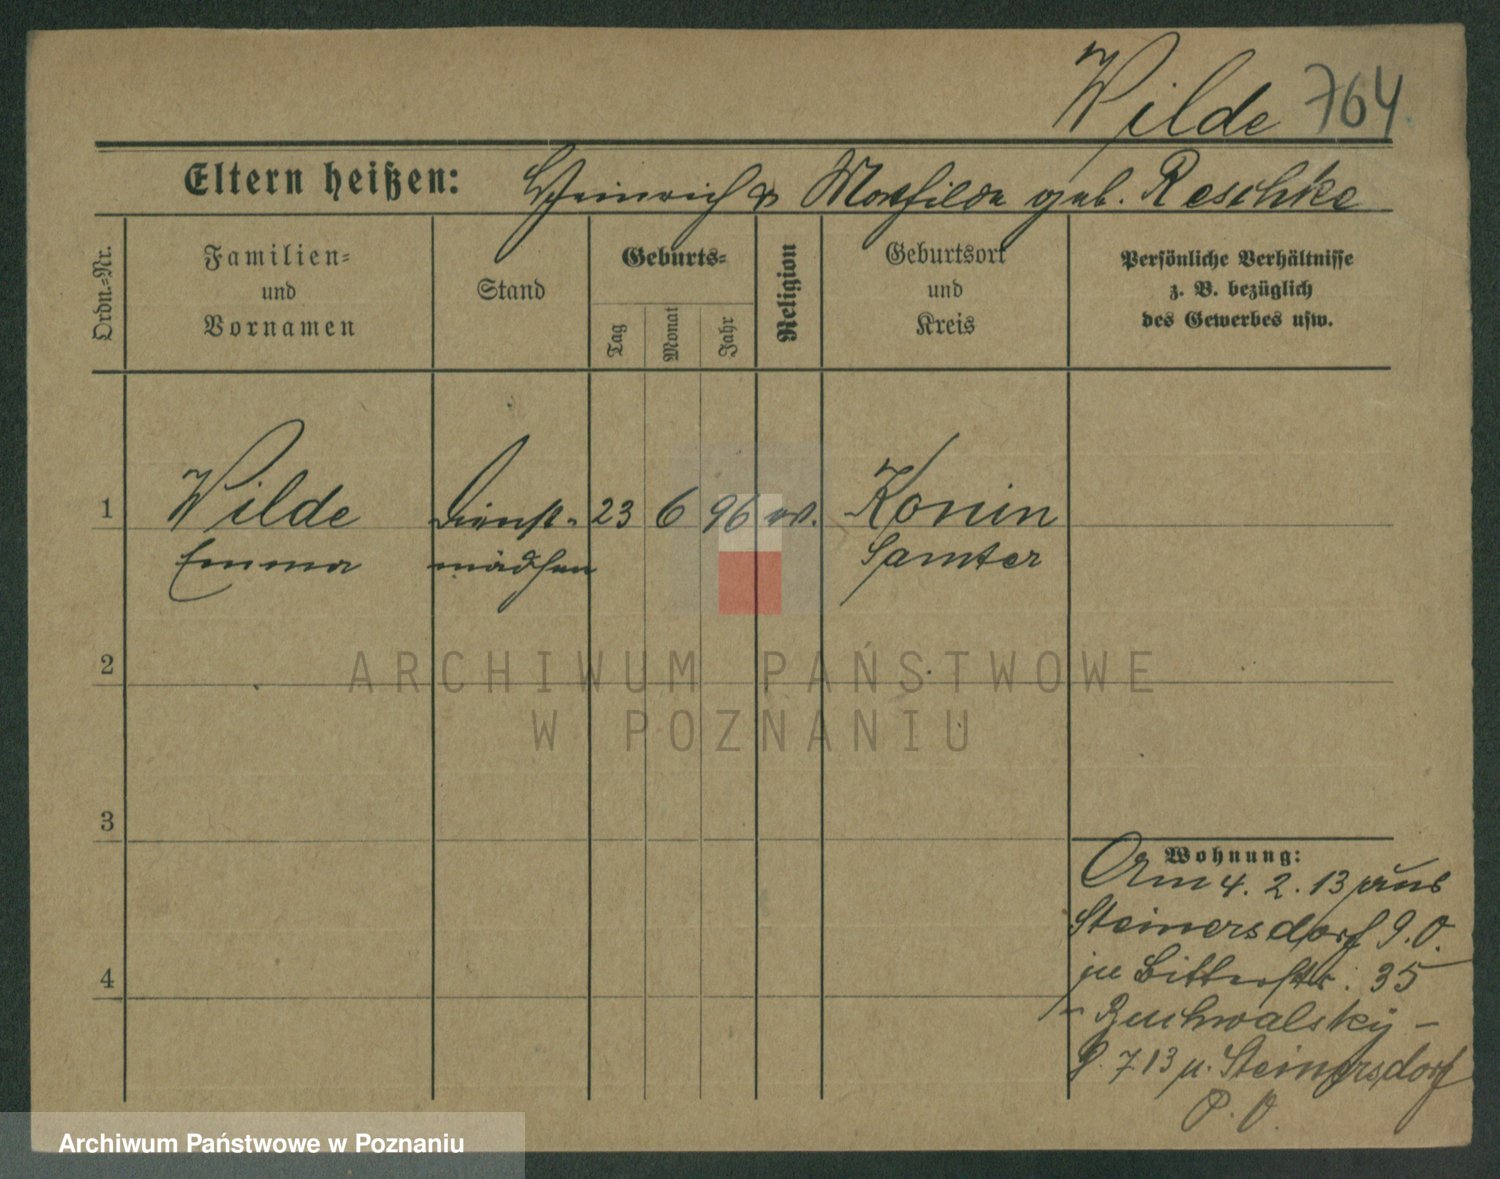 Wilde 764
Eltern heißen: Heinrich & Mathilde geb. Reschke
Ordn.-Nr.
Familien- und Vornamen
Stand
Geburts-
Tag
Monat
Jahr
Religion
Geburtsort und Kreis
Persönliche Verhältnisse
z. B. bezüglich
des Gewerbes usw.
1 Wilde Dienst- 23 6 96 ev. Konin
Emma mädchen Samter
2
ARCHIWUM PAŃSTWOWE
W POZNANIU
3
Wohnung:
Am 4. 2. 13 aus
Steinersdorf P. O.
zu Bitterstr. 35
- Buchwalsky -
7 13 n. Steinersdorf
P. O.
4
Archiwum Państwowe w Poznaniu